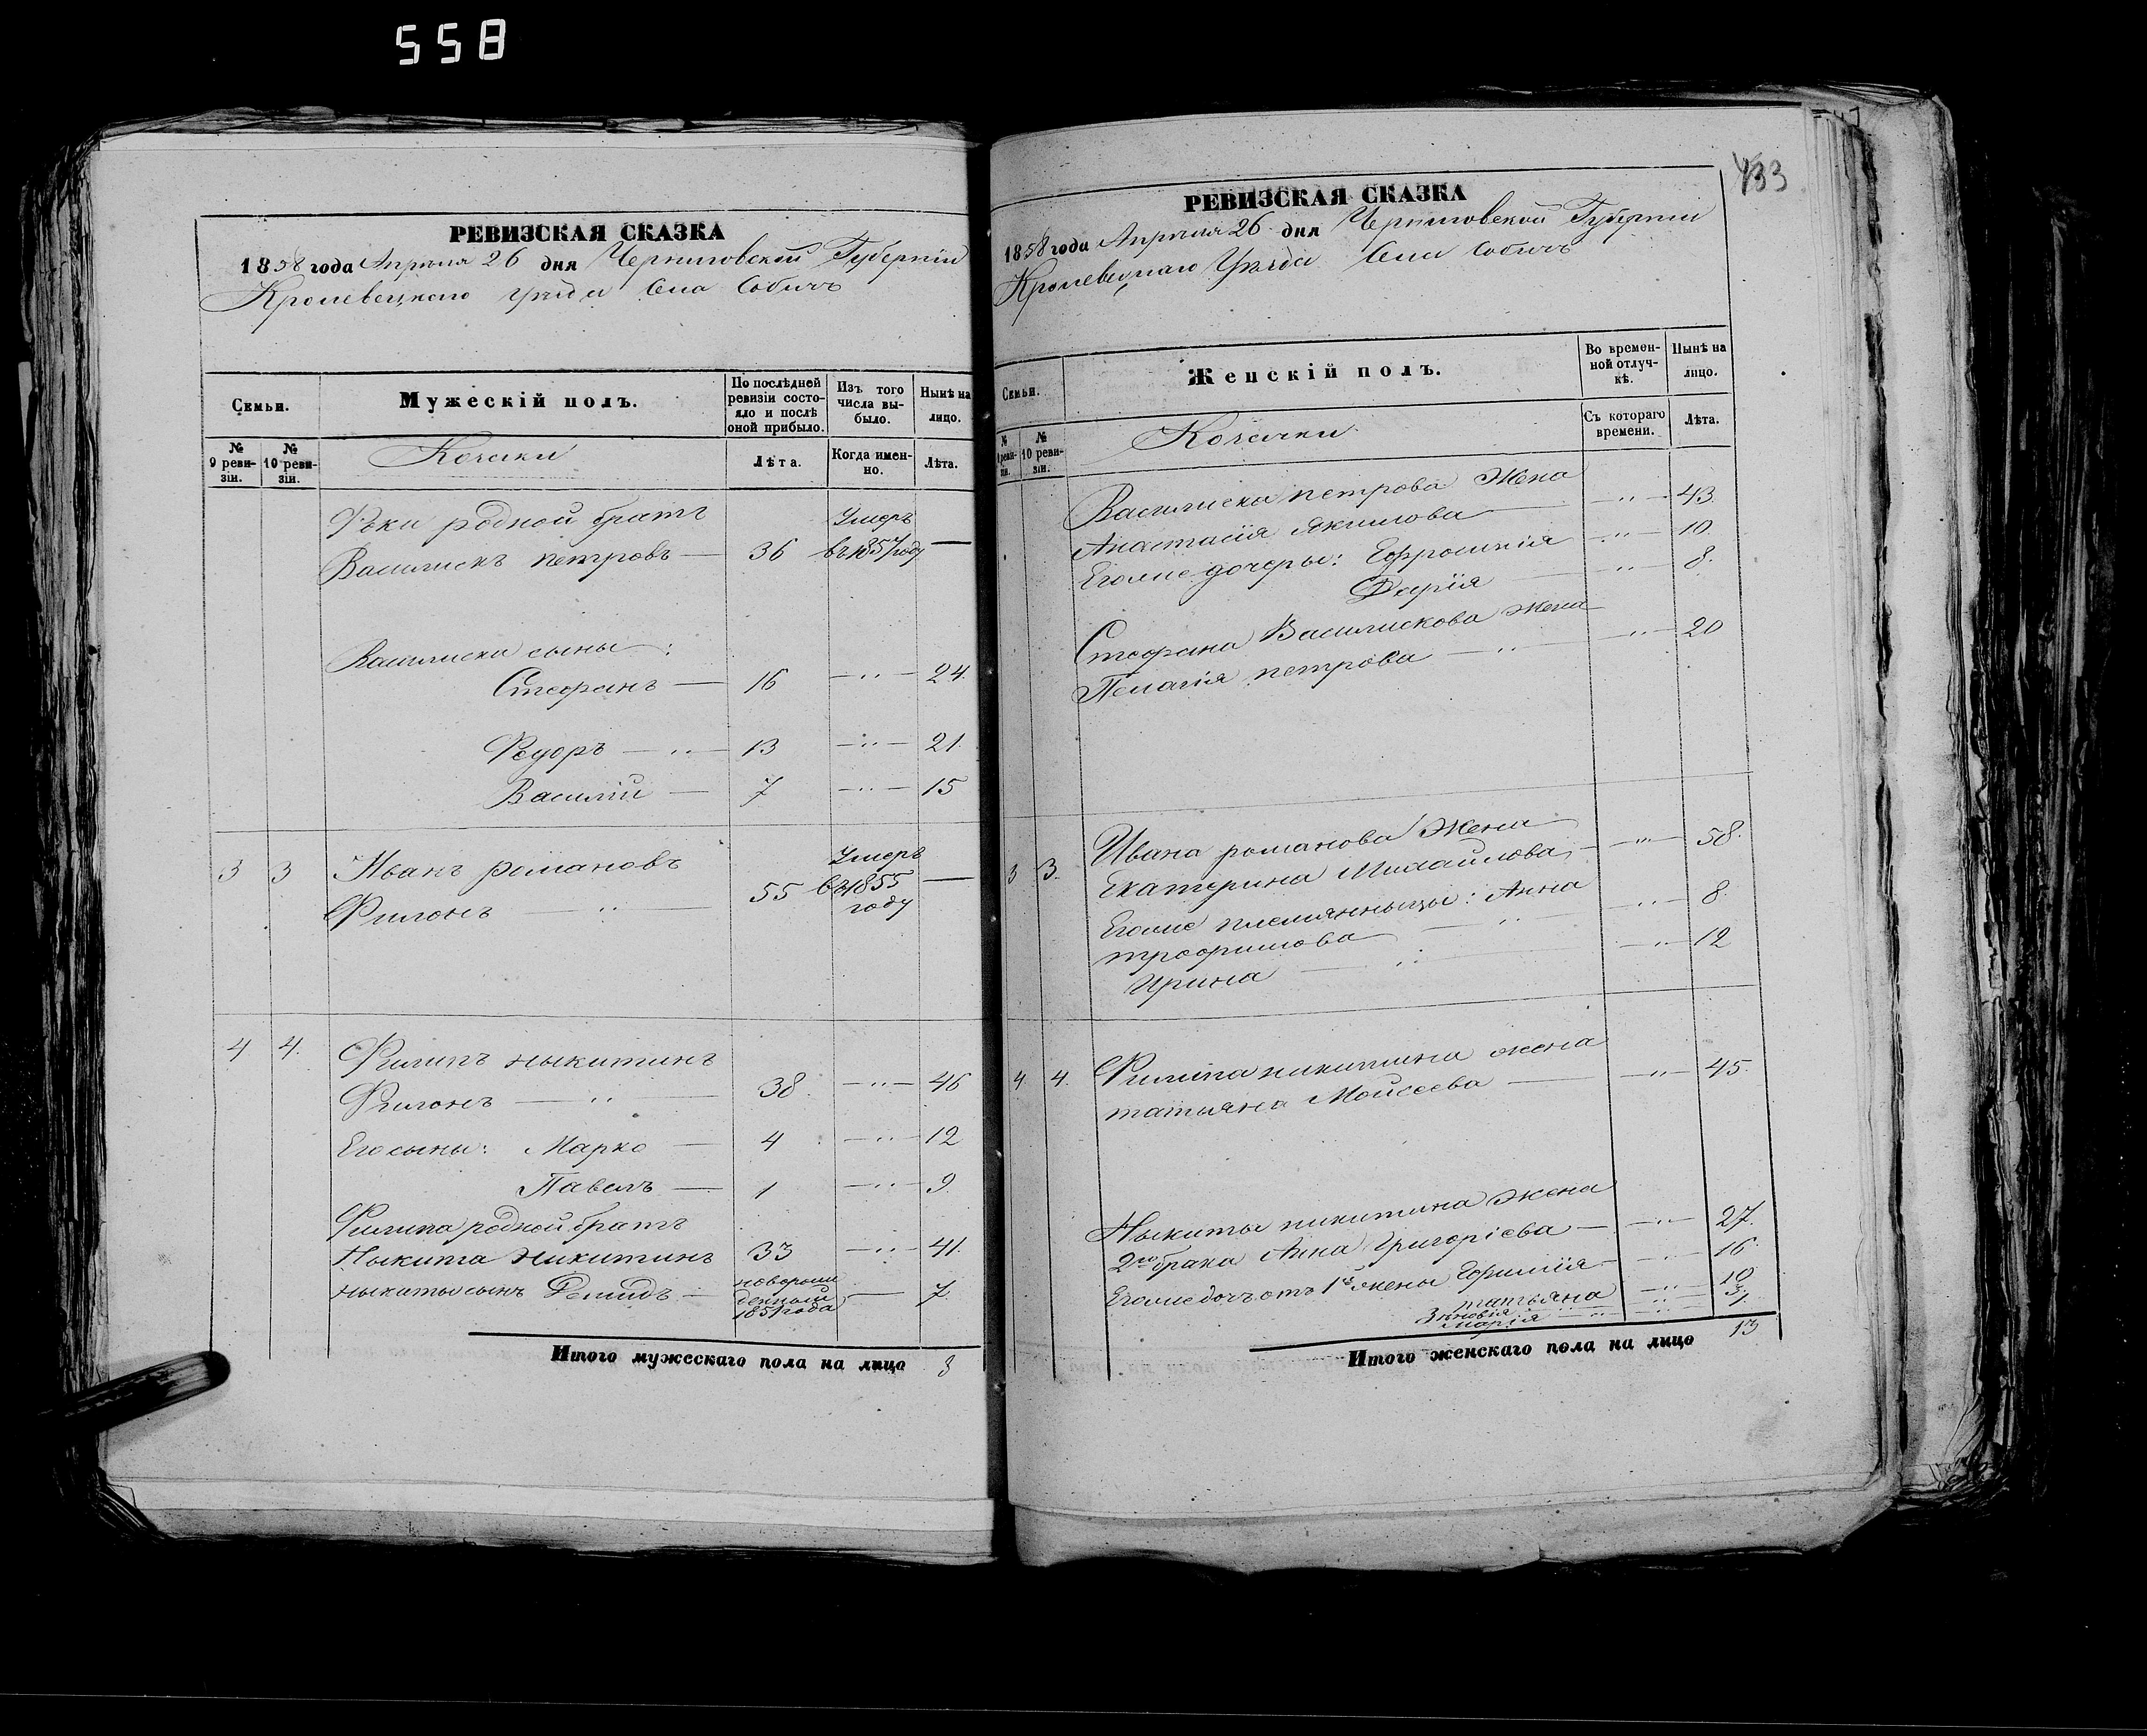 558
РЕВИЗСКАЯ СКАЗКА
1858 года Апреля 26 дня Черниговской Губернiи
Кролевецкого уезда Села Собичъ
Семьи.
Мужескiй полъ.
По послѣдней ревизiи состояло и послѣ оной прибыло.
Изъ того числа выбыло.
Нынѣ на лицо.
№ 9 ревизiи.
№ 10 ревизiи.
Козаки
Лѣта.
Когда именно.
Лѣта.
родной братъ Умеръ
Василискъ петровъ — 36 въ 1857 году —
Василиска сыны:
Стефанъ — 16 — " — 24.
Федоръ — " — 13 — " — 21.
Василiй — 7 — " — 15
3 3 Иванъ романовъ Умеръ
Филонъ — " — 55 въ 1855 году —
4 4. Филипъ ныкитинъ
Филонъ — " — 38. — " — 46
Его сыны: Марко — 4 — " — 12
Павелъ — 1 — " — 9.
Филипа родной братъ
Ныкита Никитинъ 33 — " — 41.
ныкиты сынъ Демидъ — новорожденный 1851 года — 7.
Итого мужескаго пола на лицо 8
433
РЕВИЗСКАЯ СКАЗКА
1858 года Апреля 26 дня Черниговской Губернiи
Кролевецкаго Уезда Села Собичъ
Семьи.
Женскiй полъ.
Во временной отлучкѣ.
Нынѣ на лицо.
№ 9 ревизiи.
№ 10 ревизiи.
Козачки
Съ котораго времени.
Лѣта.
Василиска петрова Жена
Анастасiя Якимова — " — 43.
Его же дочеры: Ефросинiя — " — 10.
Дарiя — " — 8.
Стефана Василискова жена
Пелагiя петрова — " — " — 20
3 3. Ивана романова Жена
Екатерина Михайлова — " — 58.
Его же племянныцы: Анна
трофимова — " — " — 8.
Ирина — " — " — 12
4 4. Филипа никитина жена
татьяна Моисеева — " — 45.
Ныкиты никитина жена
2го брака Анна Григорiева — " — 27.
Его же дочь отъ 1й жены Ефимiя — " — 16.
татьяна — " — 10
Зѣновiя — " — 3
Марiя — " — 1.
Итого женскаго пола на лицо 13